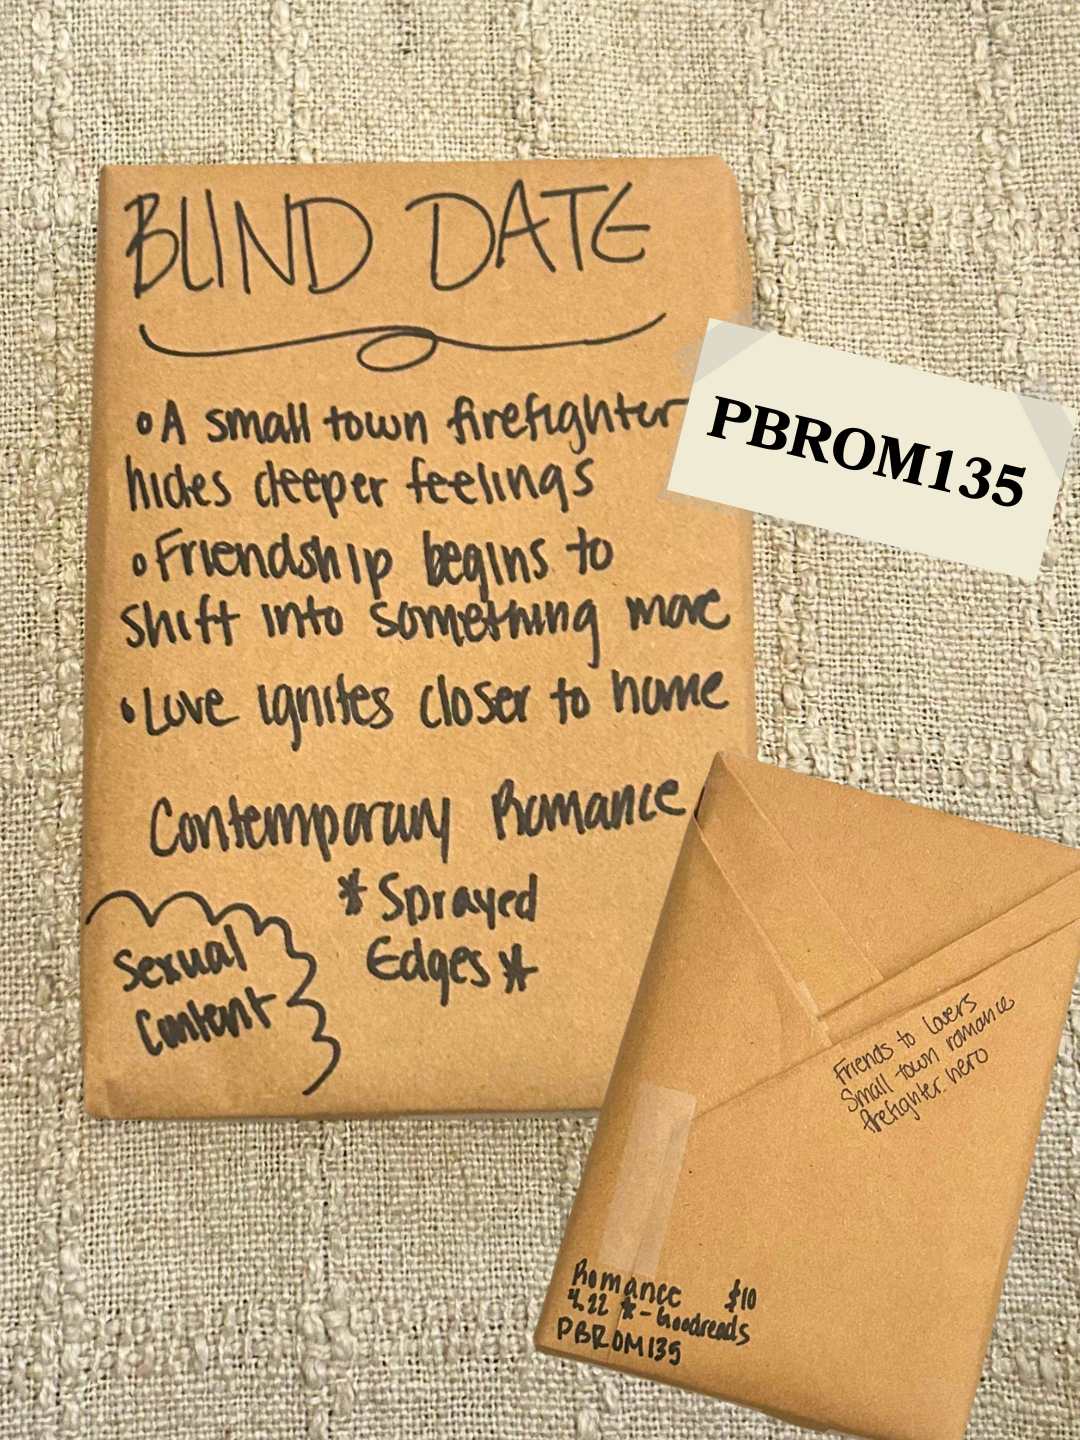 BLIND DATE
• A small town firefighter
hides deeper feelings
• Friendship begins to
shift into something more
• Love ignites closer to home
Contemporary Romance
* Sprayed
Edges *
Sexual
Content
PBROM135
Friends to lovers
Small town romance
firefighter hero
Romance $10
4.22 * - Goodreads
PBROM135